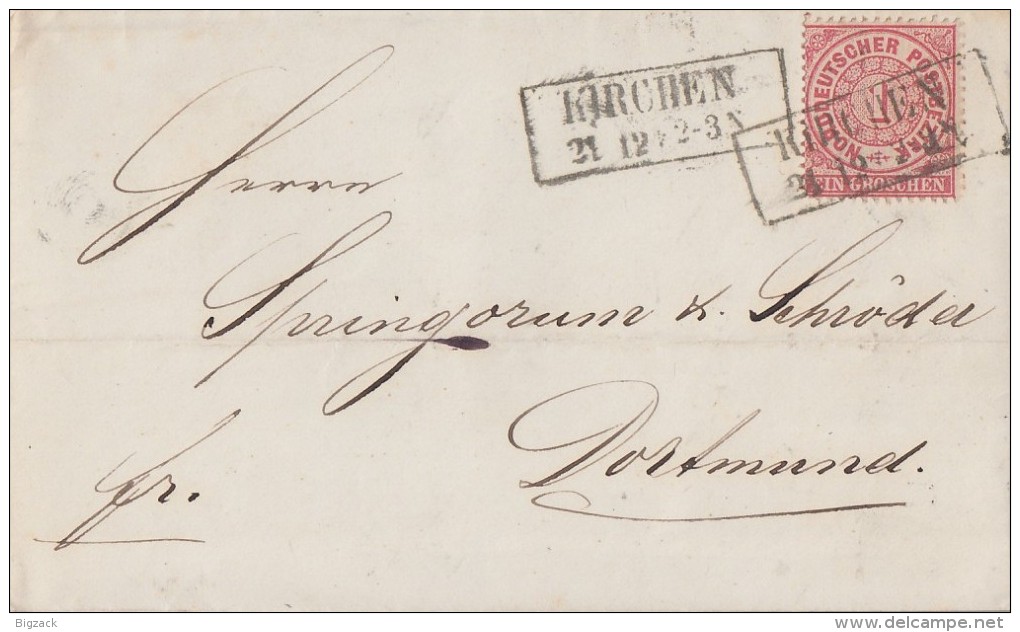 KIRCHEN
21 12 * 2-3 N
NORDDEUTSCHER POSTBEZIRK
1
EIN GROSCHEN
KIRCHEN
21 12
Herrn
Springorum & Schröder
Dortmund.
fr.
Bigzack
www.delcampe.net